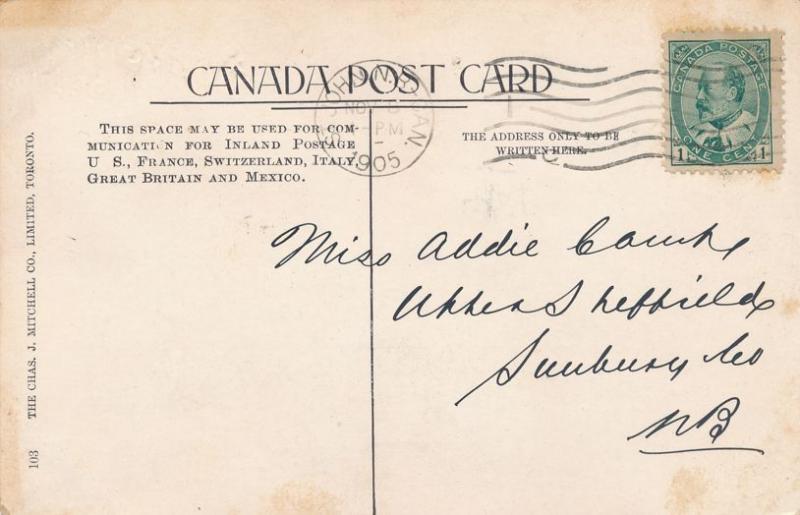 CANADA POST CARD
THIS SPACE MAY BE USED FOR COM-
MUNICATION FOR INLAND POSTAGE
U S., FRANCE, SWITZERLAND, ITALY,
GREAT BRITAIN AND MEXICO.
THE ADDRESS ONLY TO BE
WRITTEN HERE.
ST. JOHN, N.B. CAN.
NOV
PM
1905
CANADA POSTAGE
1 ONE CENT 1
Miss Addie
Upper Sheffield
Sunbury Co
NB
103 THE CHAS. J. MITCHELL CO., LIMITED, TORONTO.